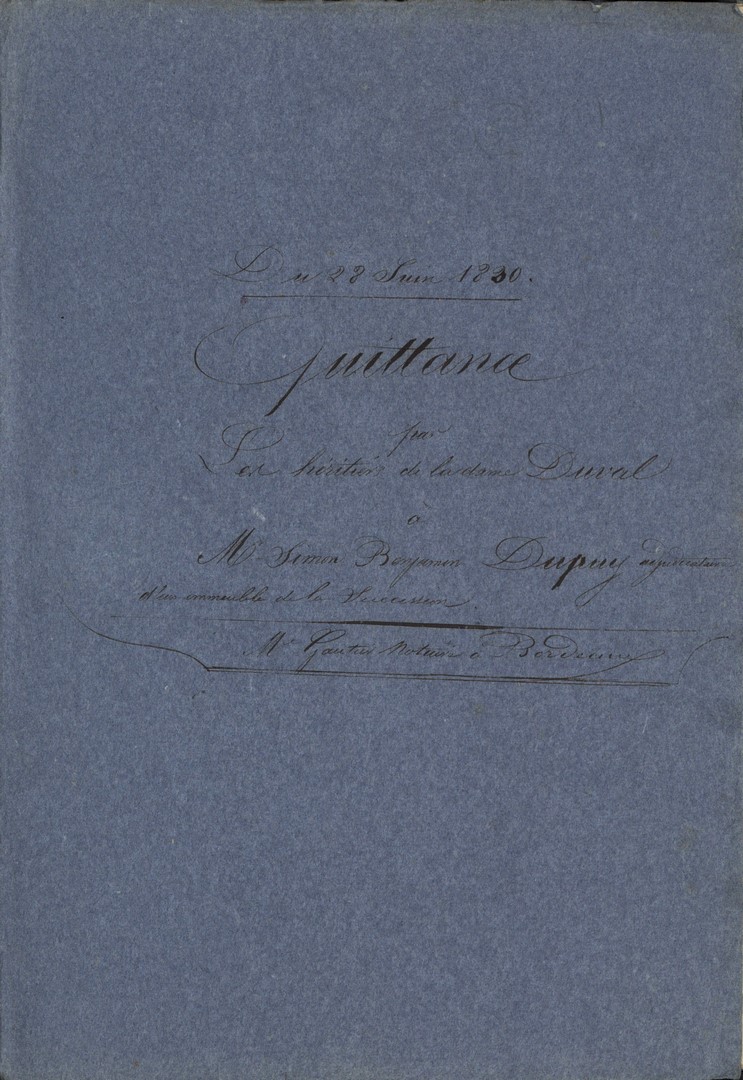 Du 28 Juin 1830.
Quittance
par
Les héritiers de la dame Duval
à
Mr Simon Benjamin Dupuy adjudicataire
d'un immeuble de la Succession
Me Gautier Notaire à Bordeaux